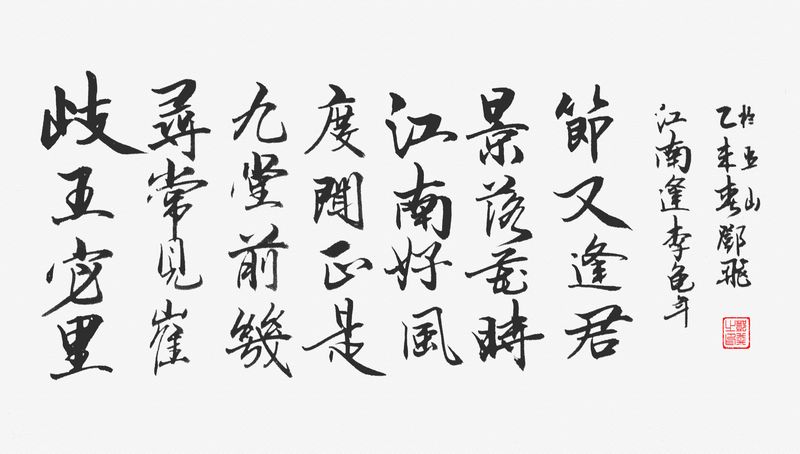 歧王宅里
尋常見崔
九堂前幾
度聞正是
江南好風
景落花時
節又逢君
江南逢李龟年
乙未春鄧飛
山